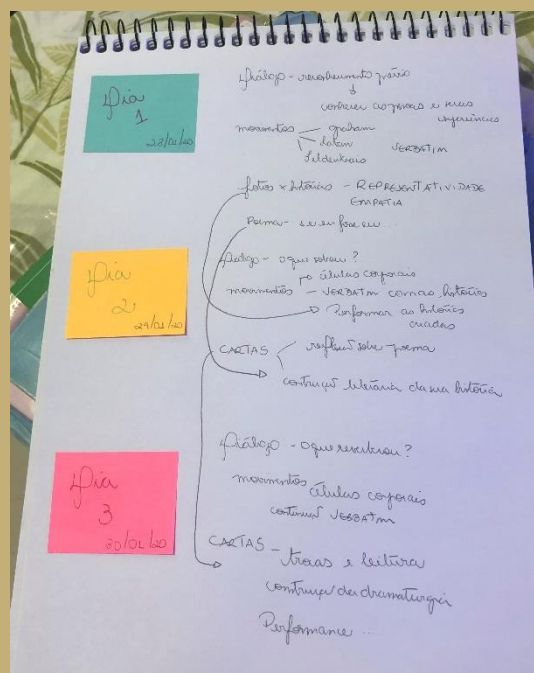 Dia
1
28/01/20
Diálogo - reconhecimento prévio
conhecer as pessoas e suas
experiências
movimentos graham
laban
feldenkrais
VERBATIM
fotos x histórias - REPRESENTATIVIDADE
EMPATIA
Poema - se eu fosse eu...
Dia
2
29/01/20
Diálogo - o que sobrou?
células corporais
movimentos - VERBATIM com as histórias
Performar as histórias
criadas
CARTAS reflexões sobre poema
construção literária da sua história
Dia
3
30/01/20
Diálogo - o que reverberou?
movimentos células corporais
VERBATIM
CARTAS - trocas e leitura
construção da dramaturgia
Performance...